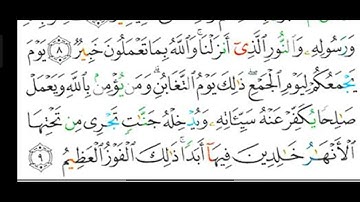 وَرَسُولِهِۦ وَٱلنُّورِ ٱلَّذِىٓ أَنزَلْنَا ۚ وَٱللَّهُ بِمَا تَعْمَلُونَ خَبِيرٌ ۝٨ يَوْمَ
يَجْمَعُكُمْ لِيَوْمِ ٱلْجَمْعِ ۖ ذَٰلِكَ يَوْمُ ٱلتَّغَابُنِ ۗ وَمَن يُؤْمِنۢ بِٱللَّهِ وَيَعْمَلْ
صَٰلِحًا يُكَفِّرْ عَنْهُ سَيِّـَٔاتِهِۦ وَيُدْخِلْهُ جَنَّٰتٍ تَجْرِى مِن تَحْتِهَا
ٱلْأَنْهَٰرُ خَٰلِدِينَ فِيهَآ أَبَدًا ۚ ذَٰلِكَ ٱلْفَوْزُ ٱلْعَظِيمُ ۝٩